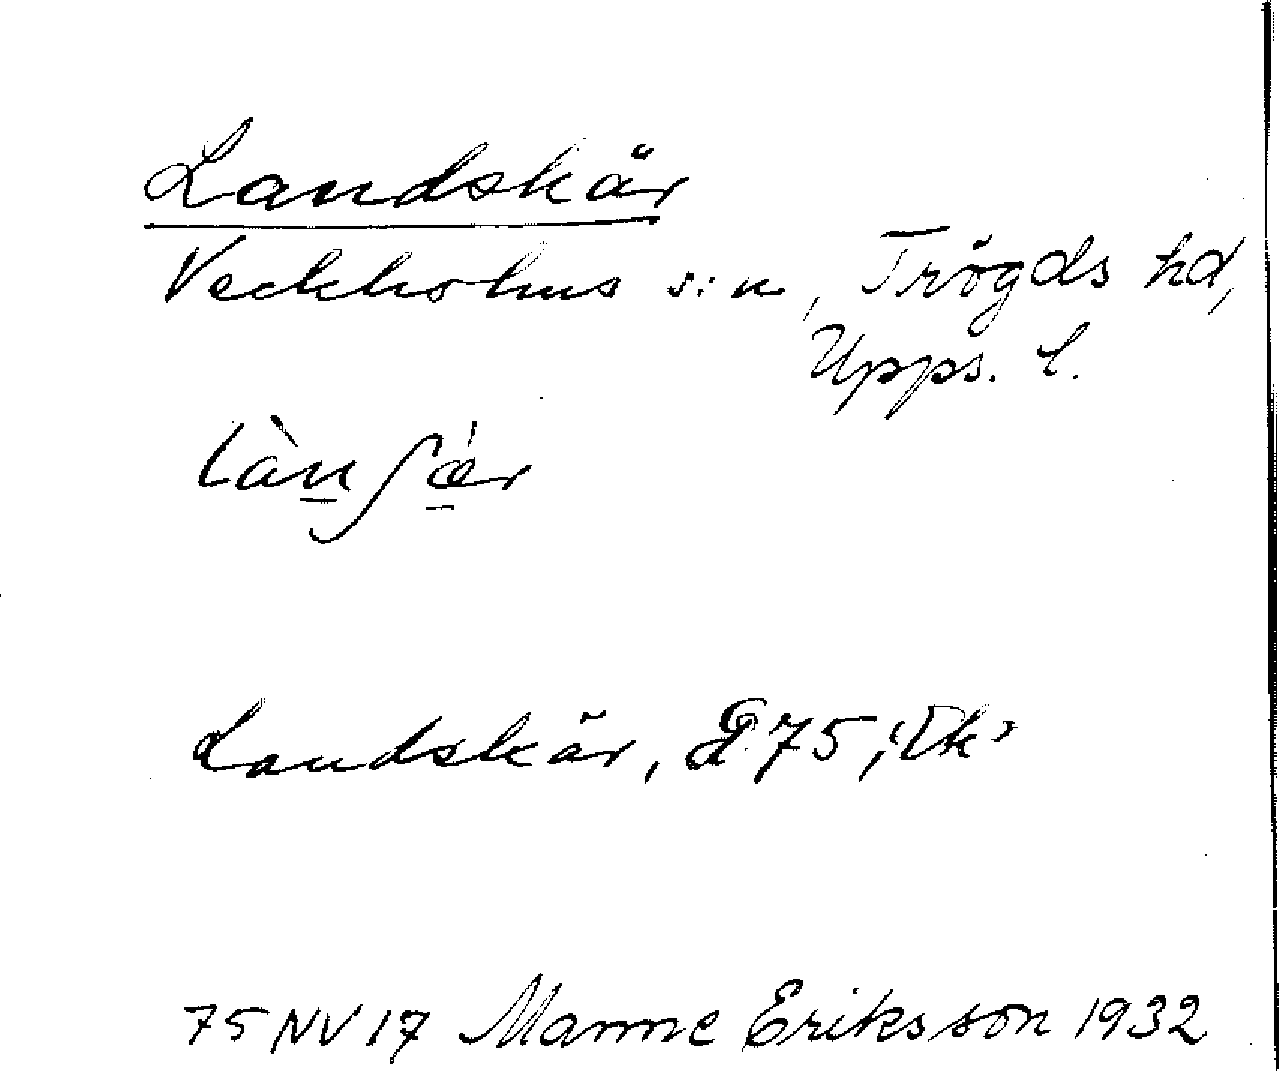 Landskär
Veckholms s:n, Trögds hd,
Upps. l.
làn̲ʃæ̲̀r
Landskär, G 75, Ek
75 NV 17 Manne Eriksson 1932